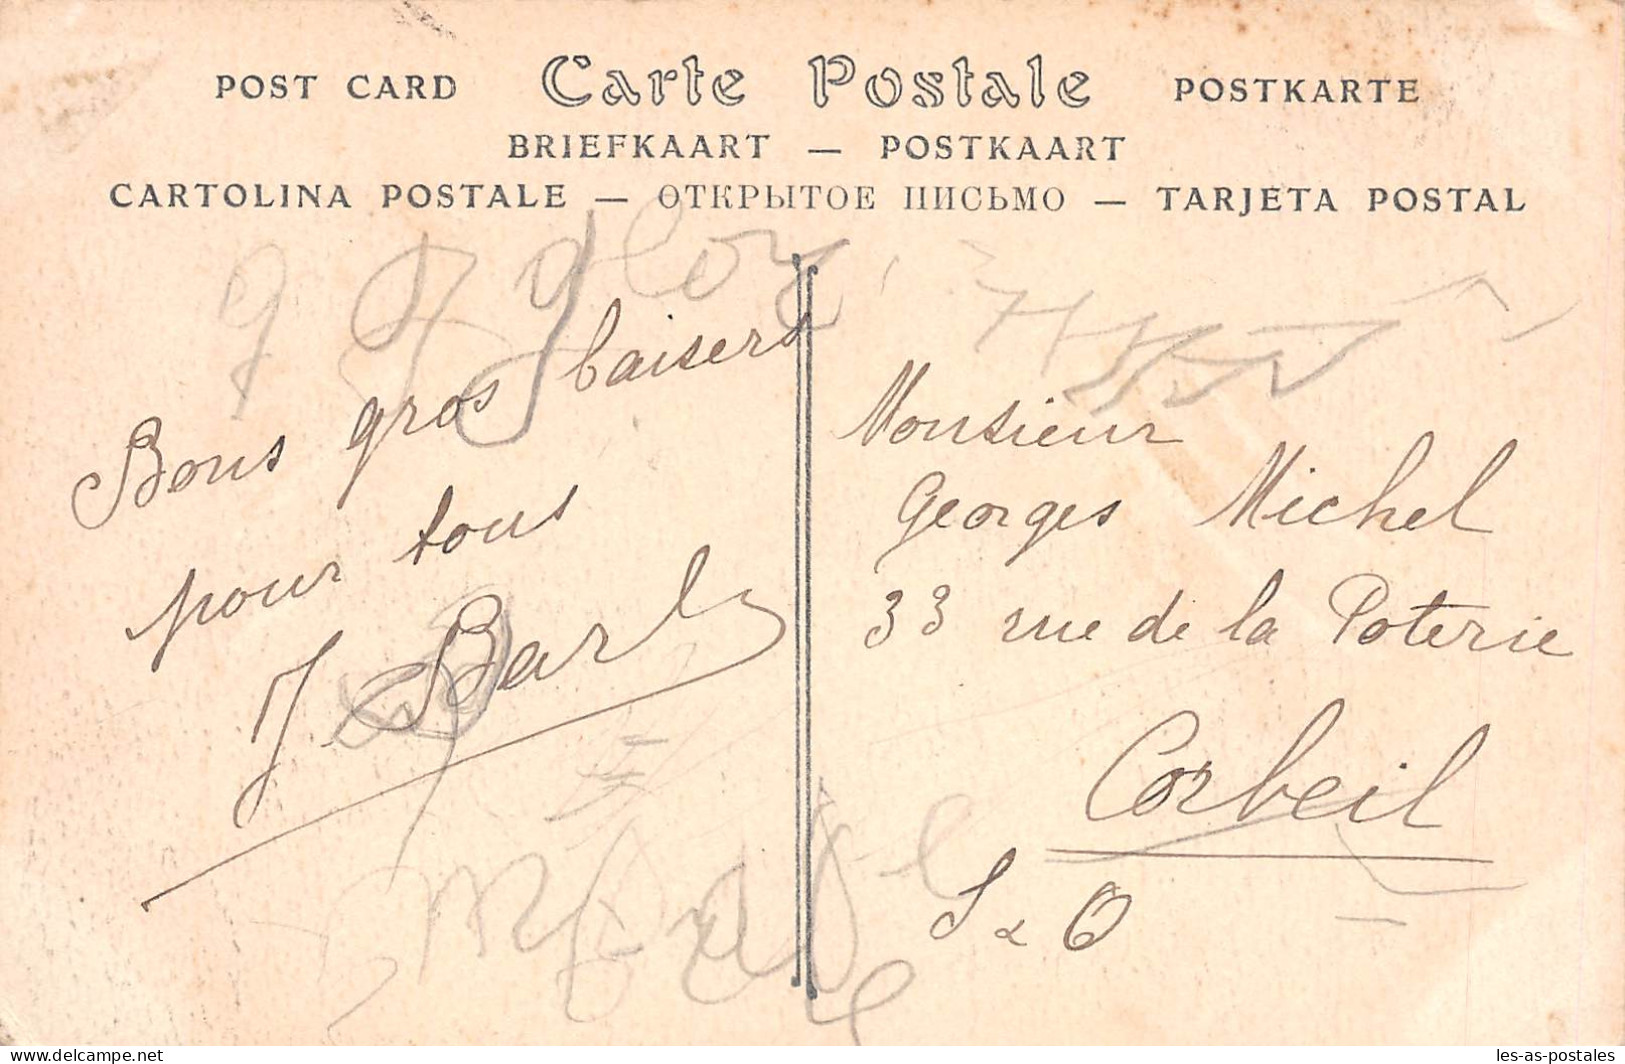 POST CARD Carte Postale POSTKARTE
BRIEFKAART — POSTKAART
CARTOLINA POSTALE — ОТКРЫТОЕ ПИСЬМО — TARJETA POSTAL
Bons gros baisers
pour tous
Monsieur
Georges Michel
33 rue de la Poterie
Corbeil
S & O
www.delcampe.net
les-as-postales